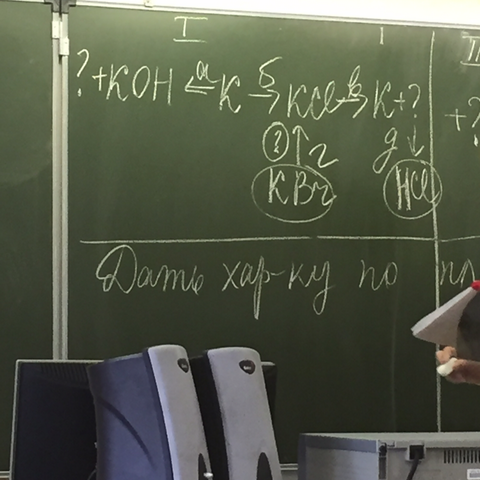 I I II
?+KOH ←а K б→ KCl в→ K+? +?
? ↑ г д ↓
KBr HCl
Дать хар-ку по пл